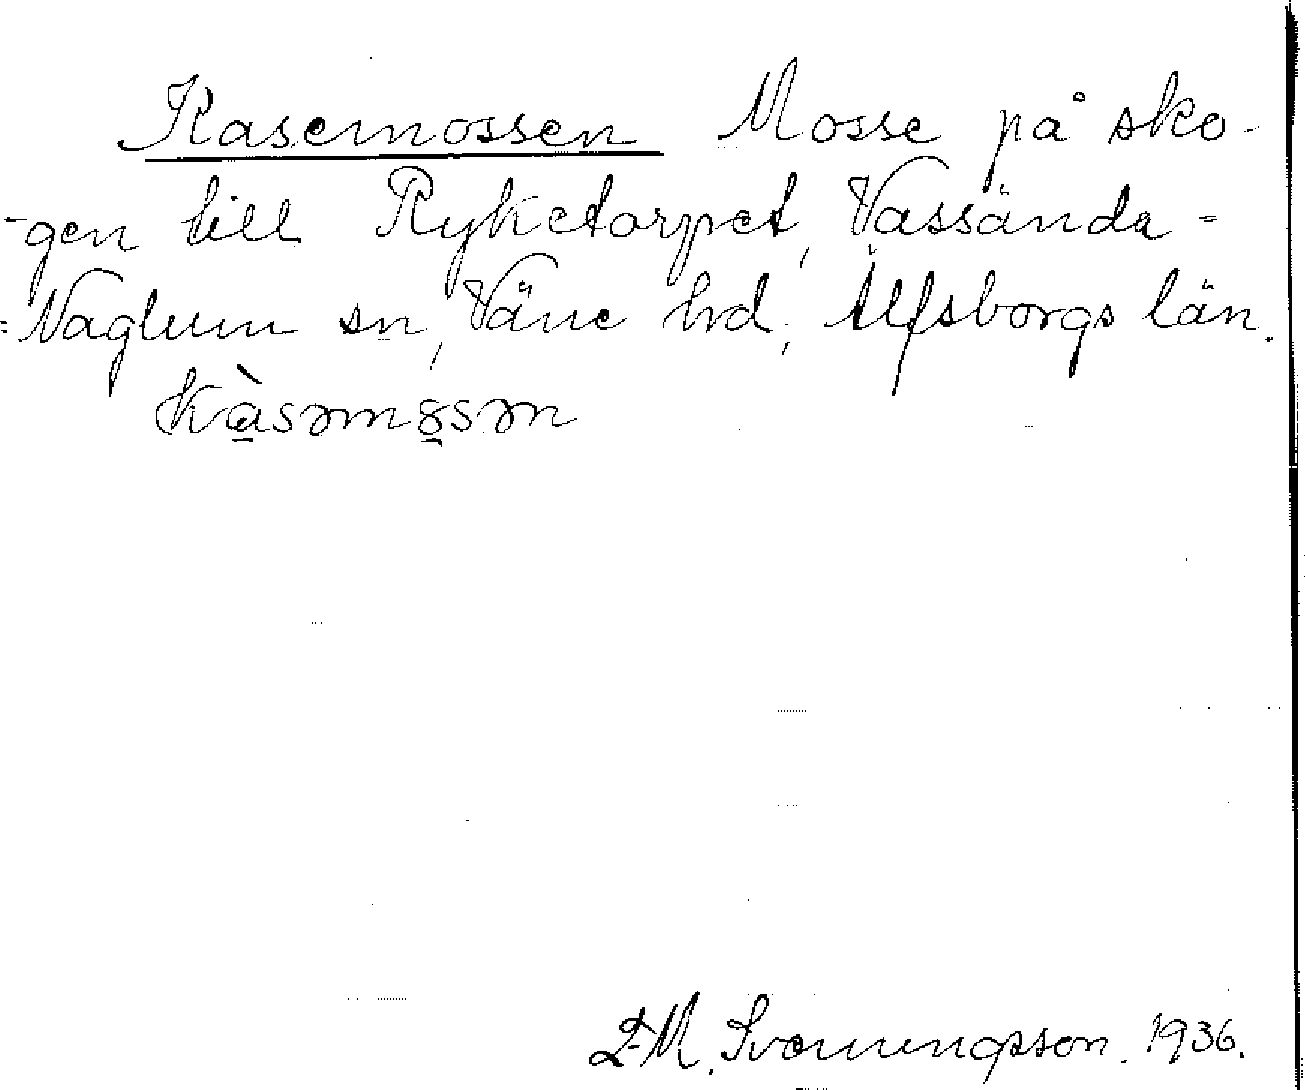 Kasemossen Mosse på sko-
-gen till Ryketorpet, Vassända-
-Naglum sn, Väne hd, Älfsborgs län.
kàsəmɷsən
D.M. Svenningsson. 1936.